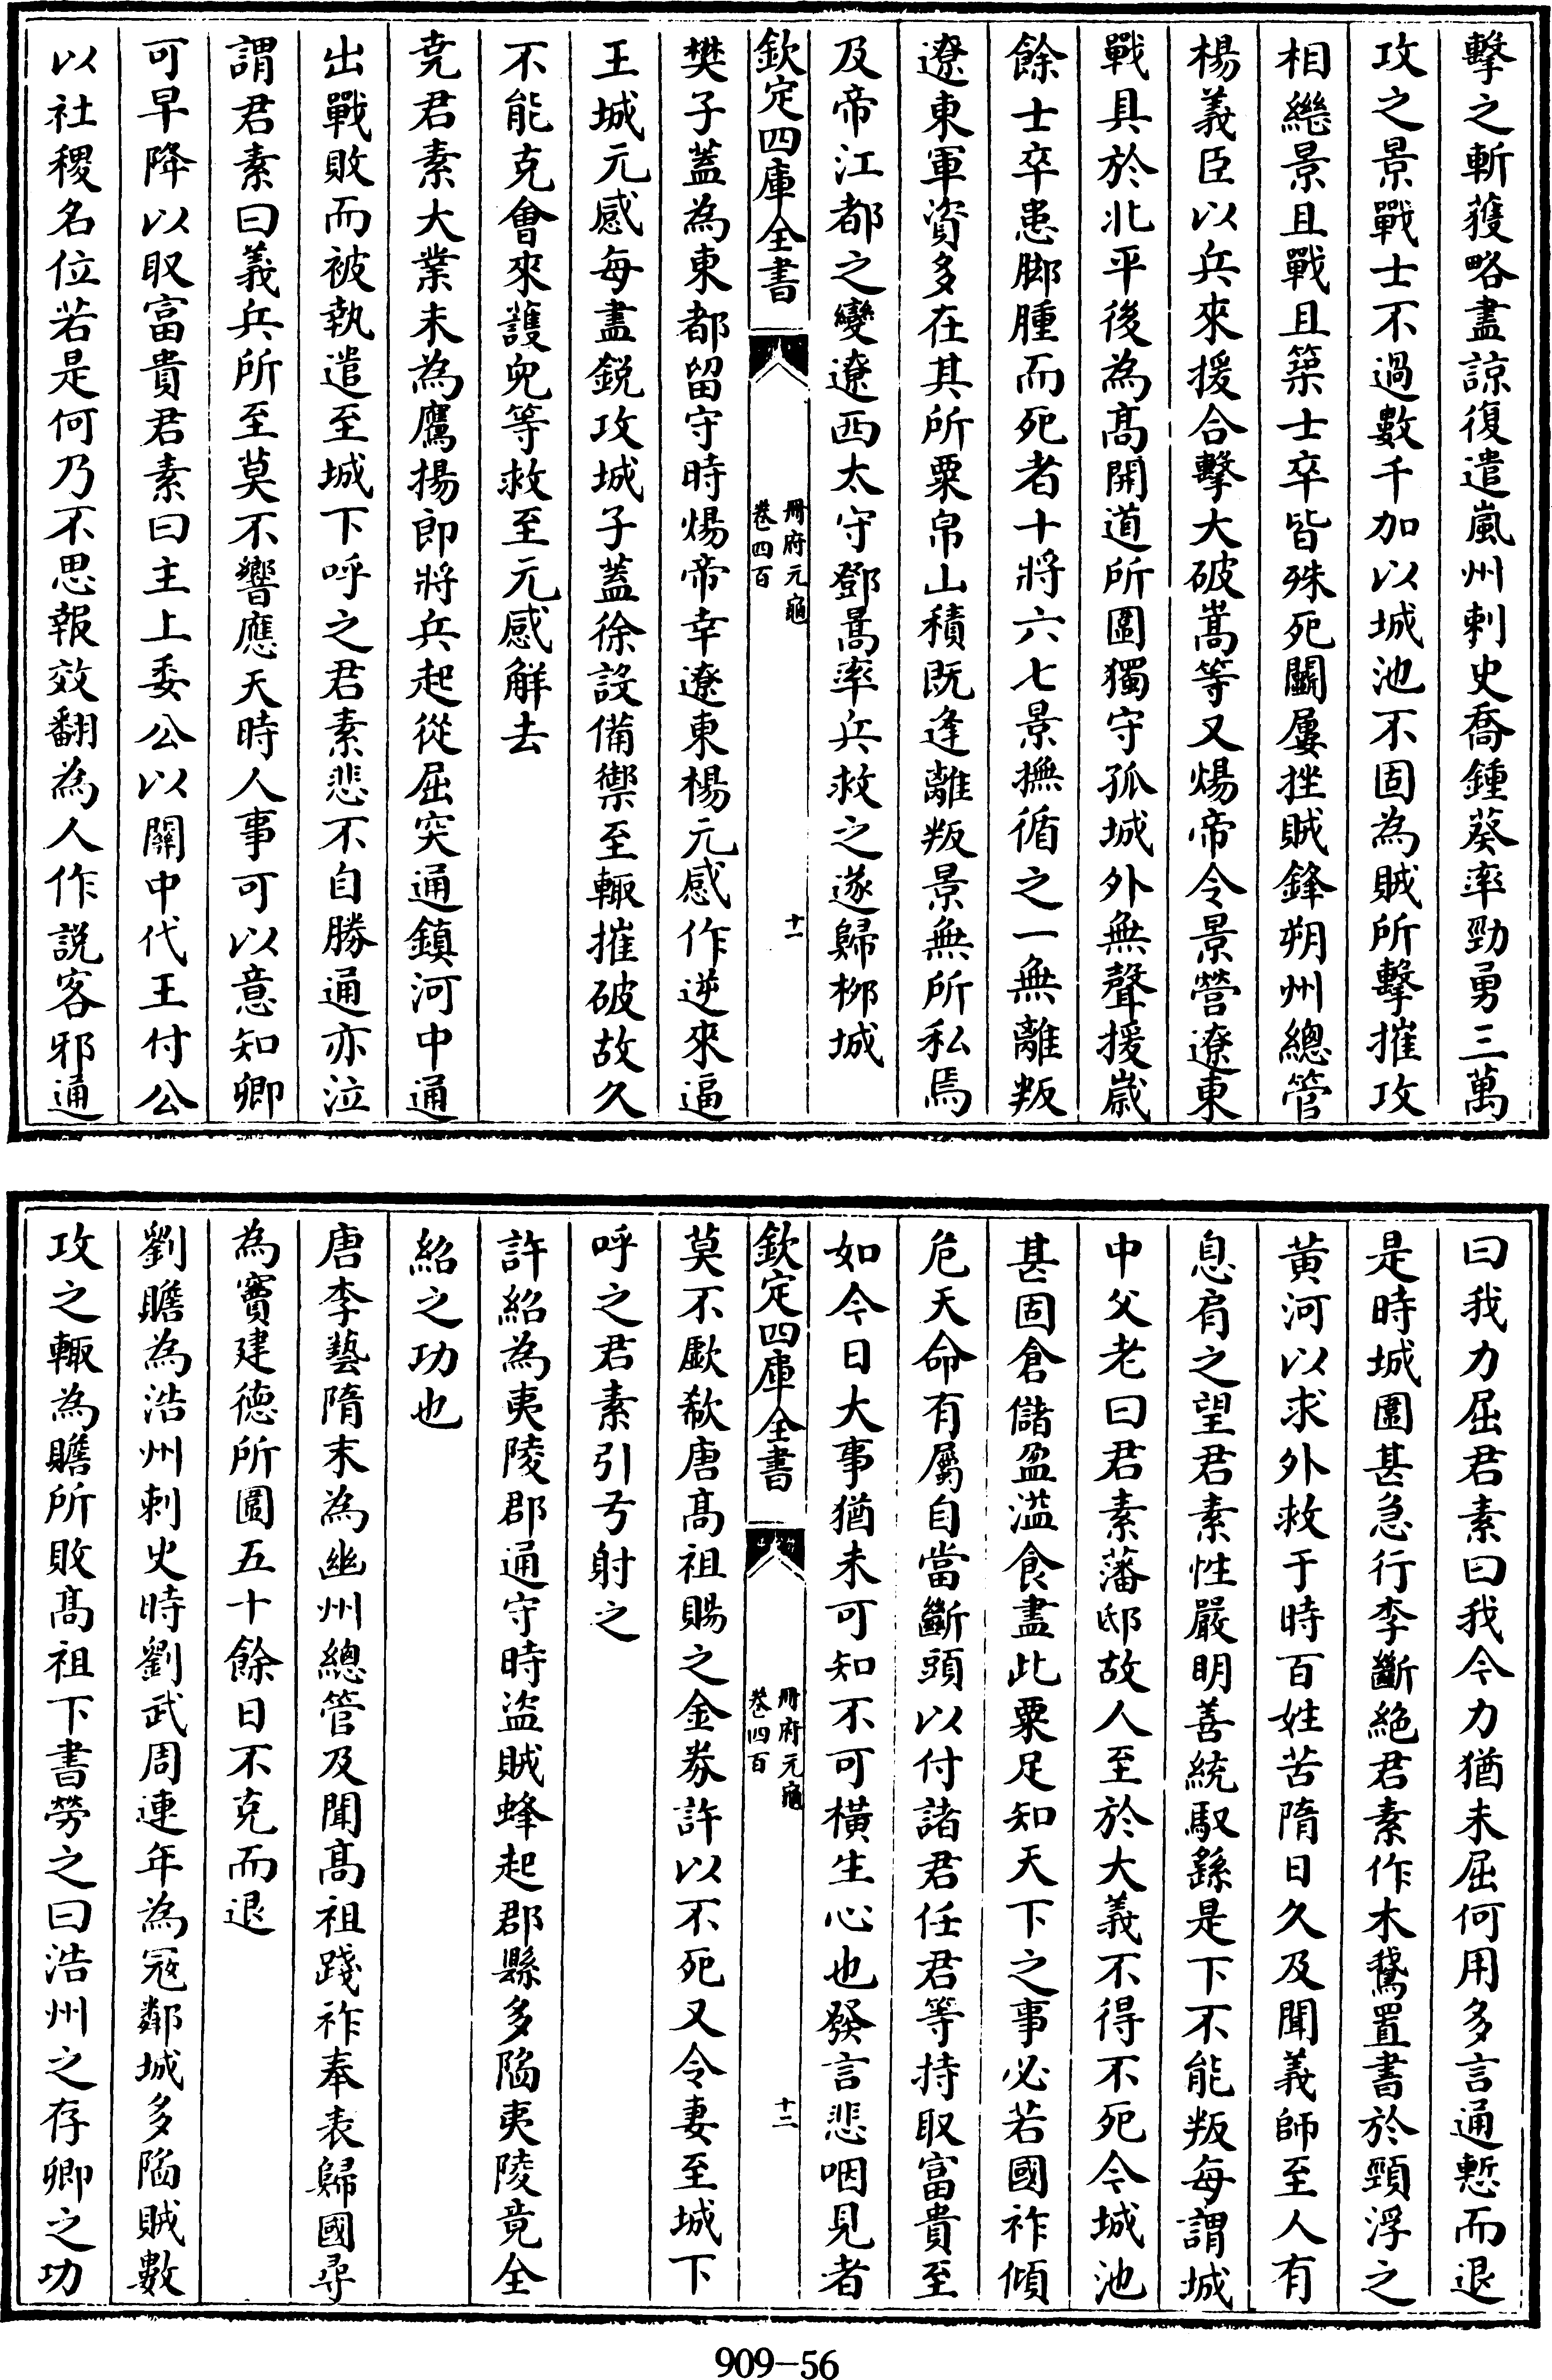 擊之斬獲略盡諒復遣嵐州刺史喬鍾葵率勁勇三萬
攻之景戰士不過數千加以城池不固為賊所擊摧攻
相繼景且戰且築士卒皆殊死鬬屢挫賊鋒朔州總管
楊義臣以兵來援合擊大破嵩等又煬帝令景營遼東
戰具於北平後為髙開道所圍獨守孤城外無聲援歲
餘士卒患脚腫而死者十將六七景撫循之一無離叛
遼東軍資多在其所粟帛山積既逢離叛景無所私焉
及帝江都之變遼西太守鄧暠率兵救之遂歸栁城
欽定四庫全書
冊府元龜
卷四百
十一
樊子蓋為東都留守時煬帝幸遼東楊元感作逆來逼
王城元感每盡鋭攻城子蓋徐設備禦至輙摧破故久
不能克會來護兒等救至元感解去
尭君素大業末為鷹揚郎將兵起從屈突通鎮河中通
出戰敗而被執遣至城下呼之君素悲不自勝通亦泣
謂君素曰義兵所至莫不響應天時人事可以意知卿
可早降以取富貴君素曰主上委公以關中代王付公
以社稷名位若是何乃不思報效翻為人作説客邪通
曰我力屈君素曰我今力猶未屈何用多言通慙而退
是時城圍甚急行李斷絶君素作木鵞置書於頸浮之
黄河以求外救于時百姓苦隋日久及聞義師至人有
息肩之望君素性嚴明善統馭繇是下不能叛每謂城
中父老曰君素藩邸故人至於大義不得不死今城池
甚固倉儲盈溢食盡此粟足知天下之事必若國祚傾
危天命有屬自當斷頭以付諸君任君等持取富貴至
如今日大事猶未可知不可橫生心也發言悲咽見者
欽定四庫全書
冊府元龜
卷四百
十二
莫不歔欷唐髙祖賜之金券許以不死又令妻至城下
呼之君素引弓射之
許紹為夷陵郡通守時盜賊蜂起郡縣多陷夷陵竟全
紹之功也
唐李藝隋末為幽州總管及聞髙祖踐祚奉表歸國尋
為竇建德所圍五十餘日不克而退
劉贍為浩州刺史時劉武周連年為冦鄰城多陷賊數
攻之輙為贍所敗髙祖下書勞之曰浩州之存卿之功
909-56